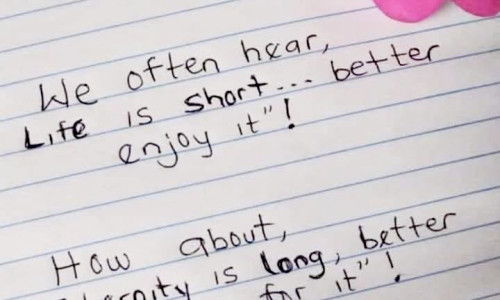 We often hear,
Life is short... better
enjoy it"!
How about,
is long, better
for it"!